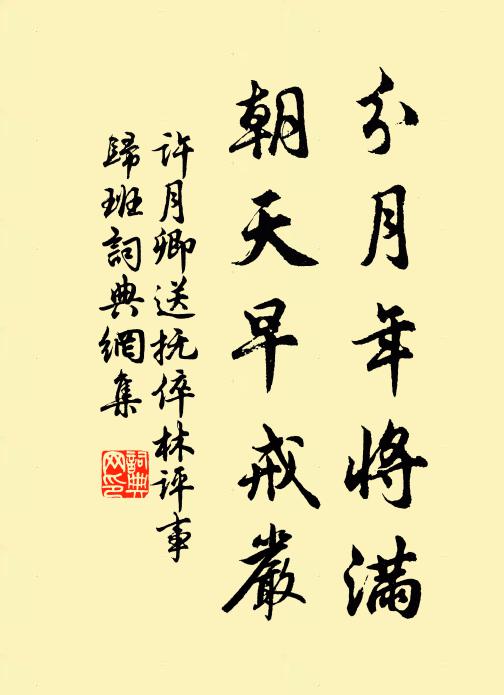 分月年將滿
朝天早戒嚴
許月卿送抚倅林評事
歸班詞典網集
詞典
网印